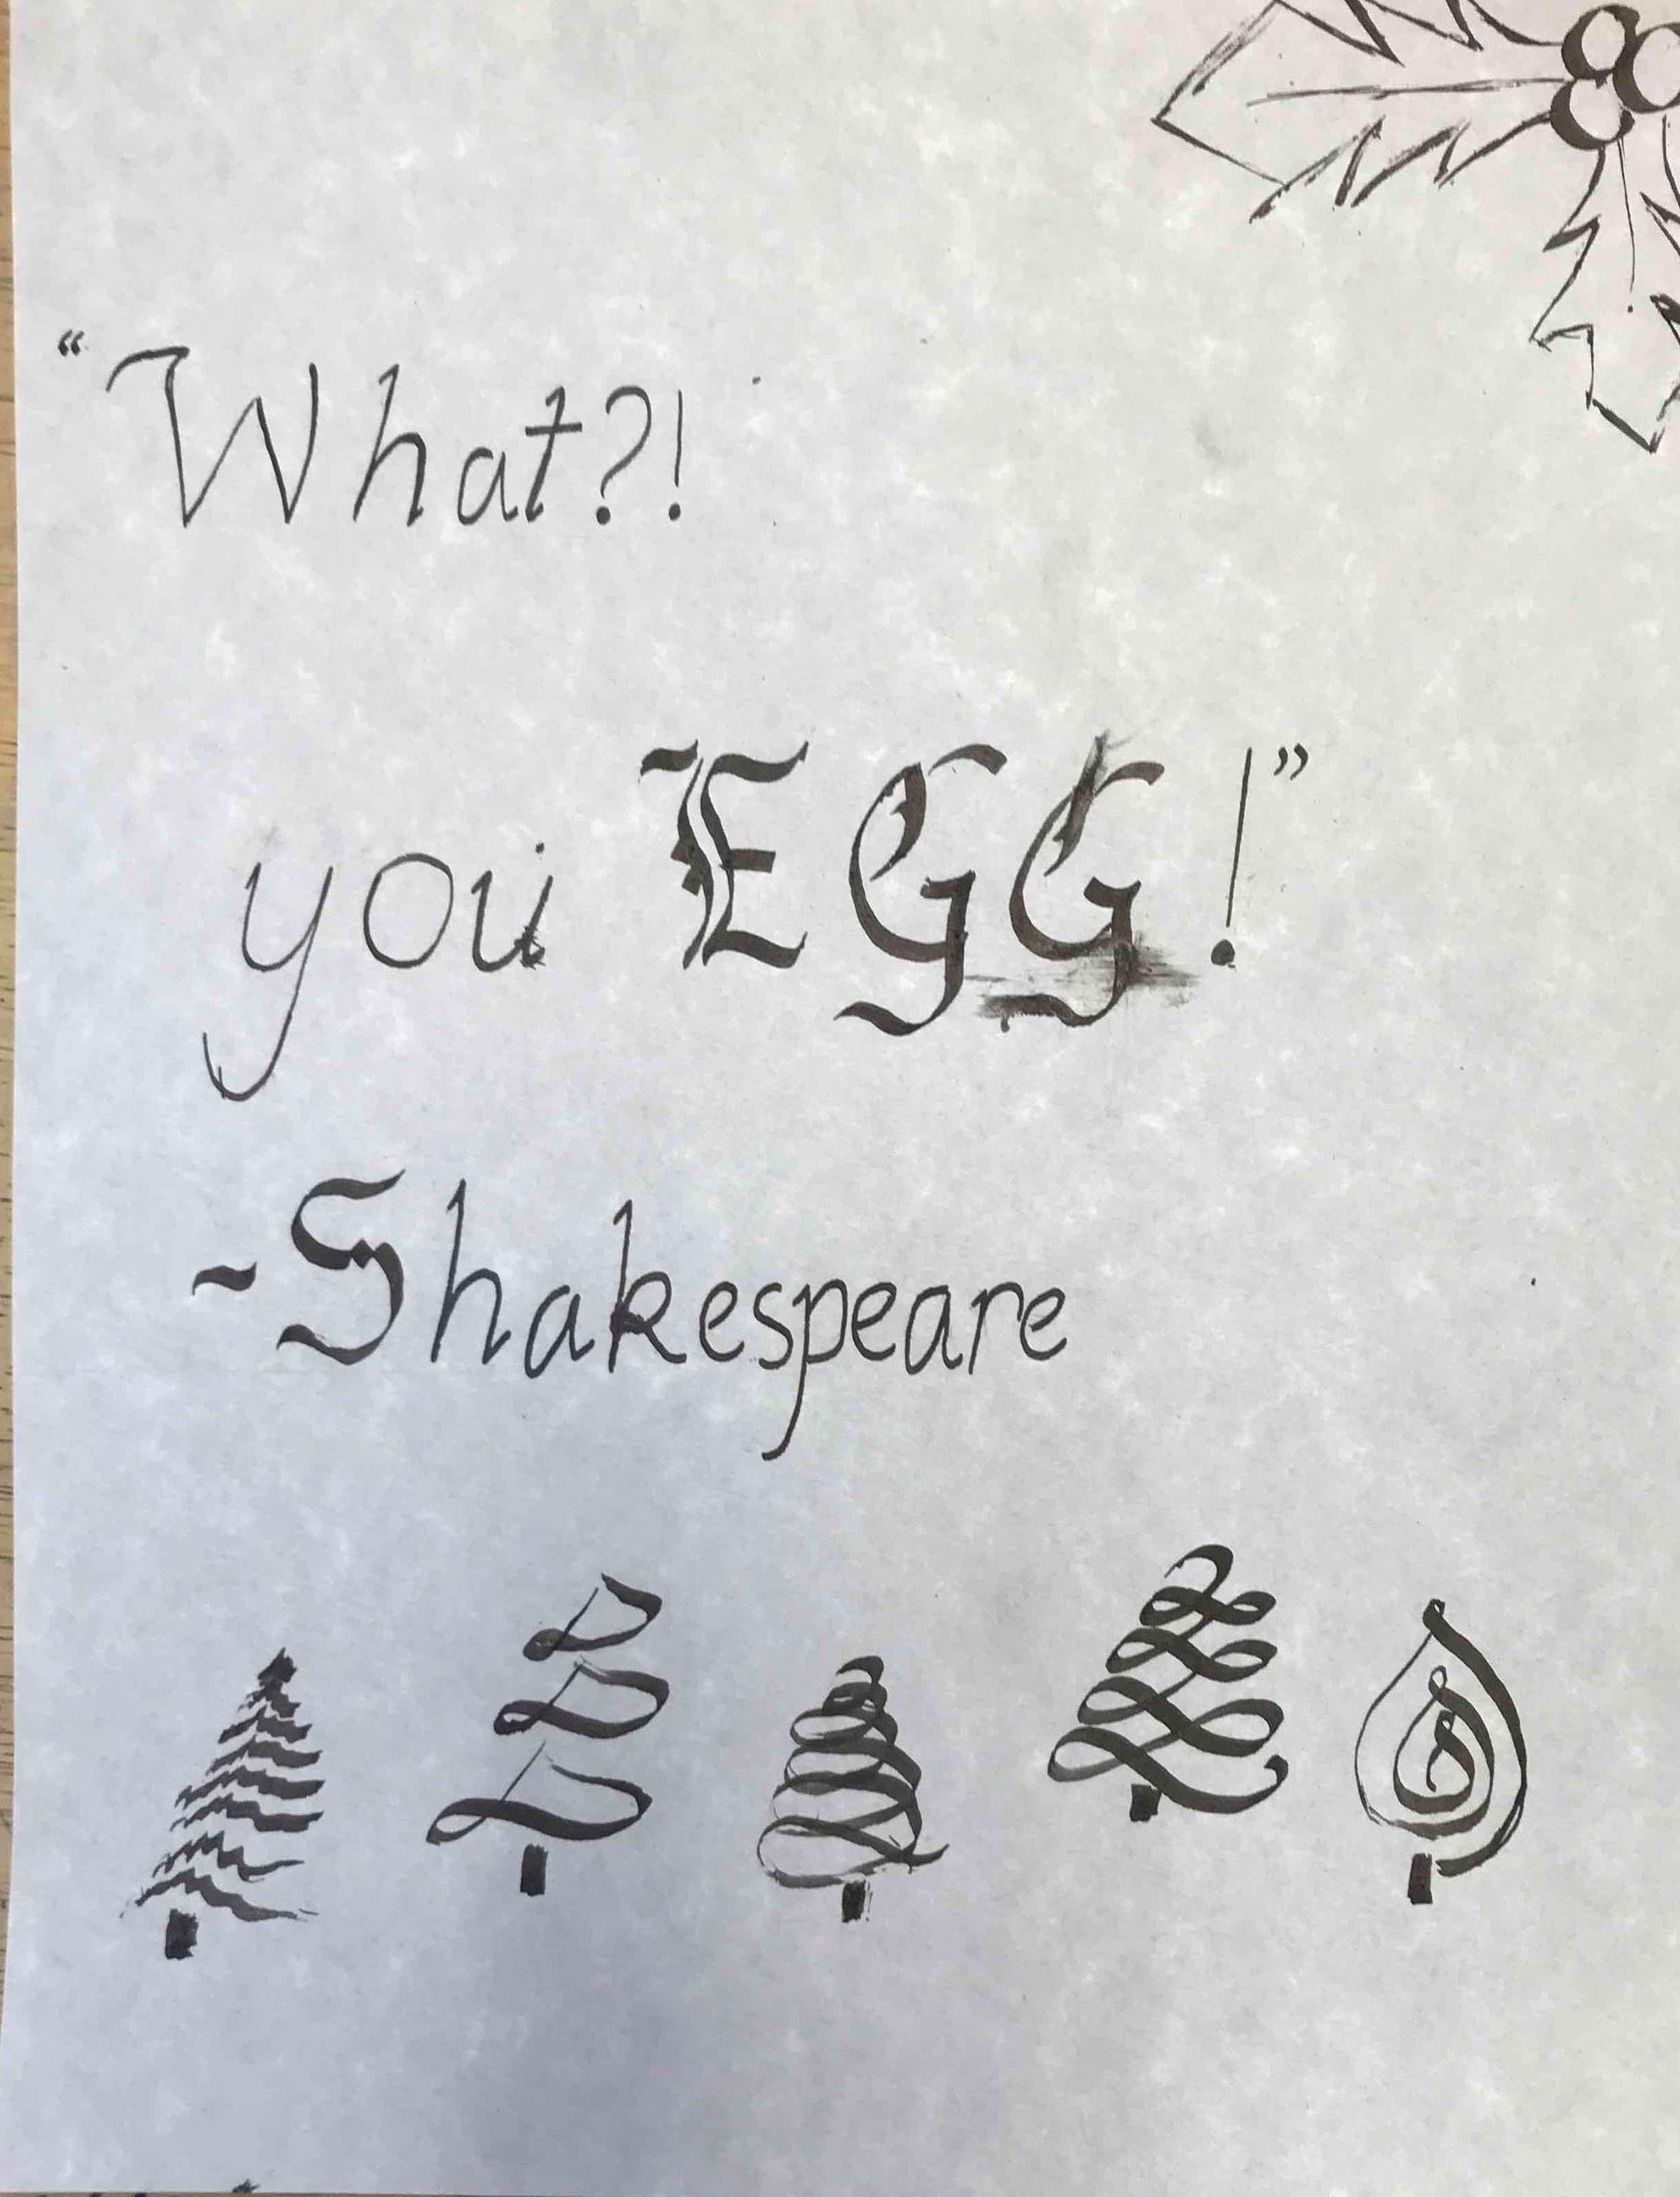 “What?!
you EGG!”
-Shakespeare